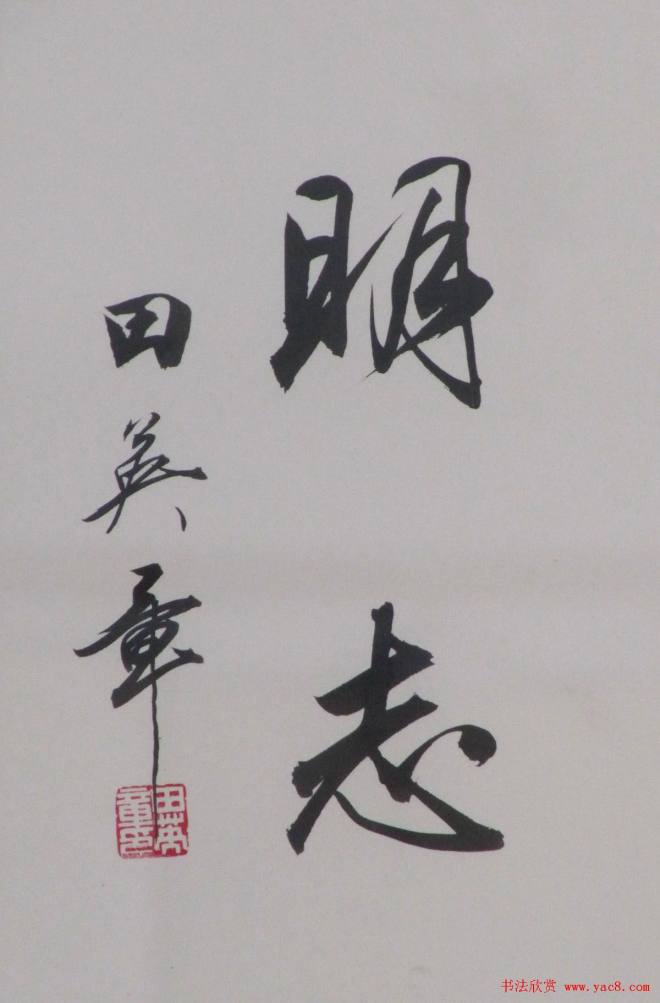 明志
田英章
田英章印
书法欣赏 www.yac8.com